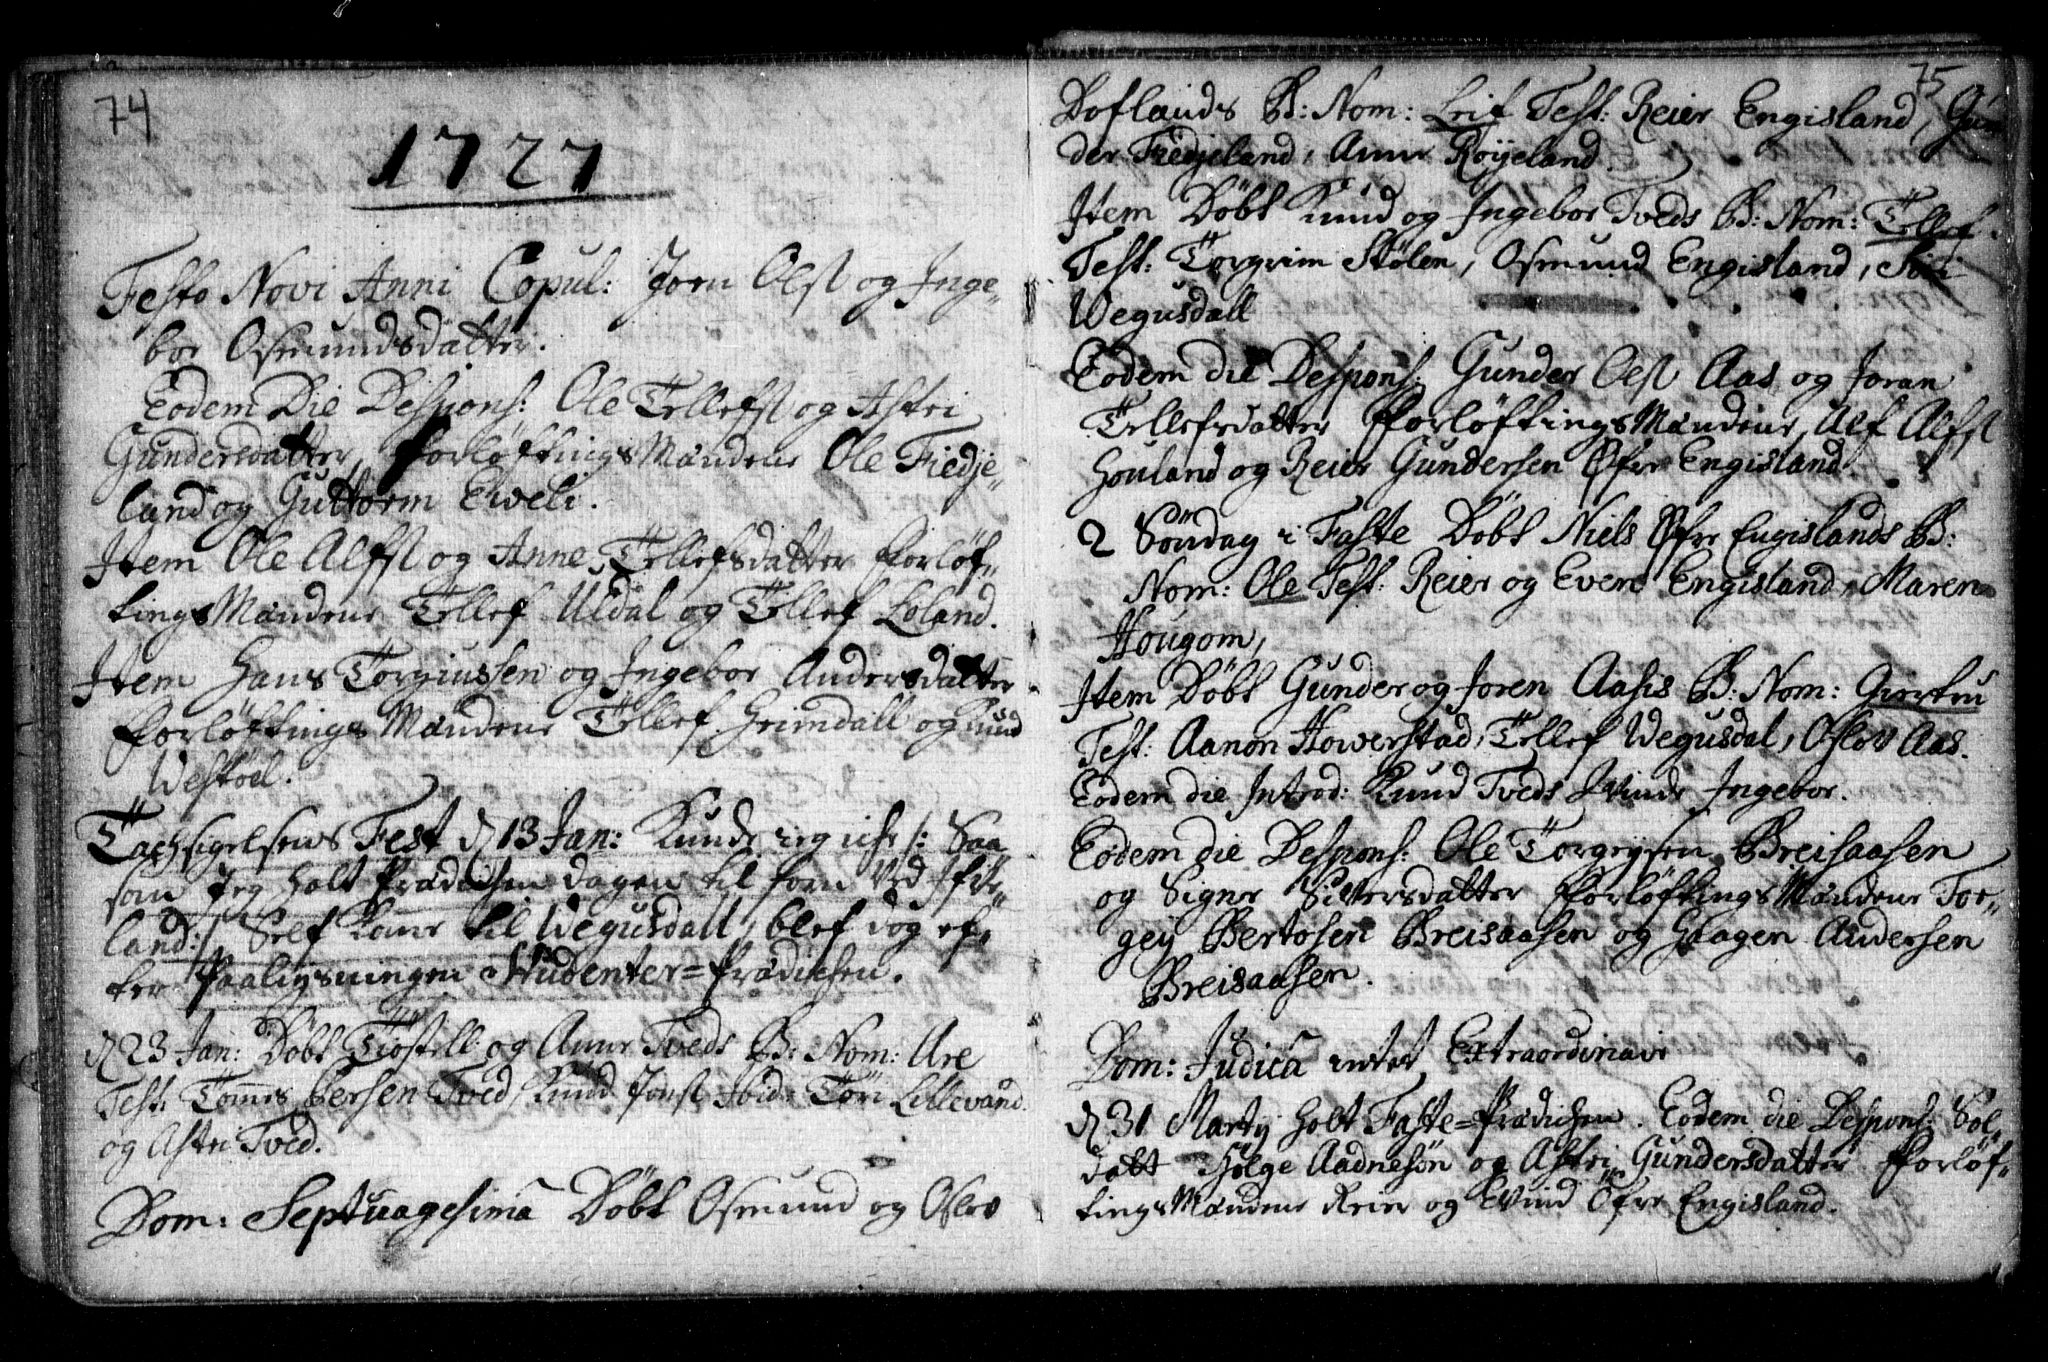 74
1727
Festo Novi Anni Copul: Jorn Olsl og Inge-
bor Osmundsdatter.
Eodem Die Despons: Ole Tellefsl og Astri
Gundersdatter, fforløftningsMændene Ole Fiedje-
land og Guttorm Eiveli.
Item Ole Alfsl og Anne Tellefsdatter fforløf-
tingsMændene Tellef Uldal og Tellef Loland.
Item Hans Torgiussen og Ingebor Andersdatter
fforløftings Mændene Tellef Heimdall og Knud
Westøel.
Tachsigelsens Fest d 13 Jan: Kunde ieg iche /: Saa
som Jeg holt Prædichen dagen til forn ved
land :/ Self kome til Wegusdall, blef dog ef-
ter Paalysningen Studenter=Prædichen.
d 23 Jan: Døbt Tiøstell og Anne Tveds B: Nom: Are
Test: Tommes Persen Tved, Knud Jonsl ibid: Tori Lillevand.
og Astri Tved.
Dom: Septuagesima Døbt Osmund og Oslov
75
Doflands B: Nom: Leif Test: Reier Engisland, Gun
der Fiedjeland, Anne Røyeland.
Item Døbt Knud og Ingebor Tveds B: Nom: Tellef.
Test: Torgrim Stølen, Osmund Engisland, Siri
Wegusdall
Eodem die Despons: Gunder Olsl Aas og Joran
Tellefsdatter fforløftingsMændene, Alf Alfsl
Houland og Reier Gundersen Øfre Engisland.
2 Søndag i Faste Døbt Niels Øfre Engislands B:
Nom: Ole Test: Reier og Even Engisland, Maren
Hougom,
Item Døbt Gunder og Joren Aasis B: Nom: Giertru
Test: Aanon Howerstad, Tellef Wegusdal, Oslov Aas.
Eodem die Introd: Knud Tveds Qvinde Ingebor.
Eodem die Despons: Ole Torgeysen Breisaasen
og Signe Siversdatter fforløftingsMændene Tor-
gey Bertosen Breisaasen og Haagen Andersen
Breisaasen.
Dom: Judica intet Extraordinair
d 31 Martij holt Faste=Prædichen. Eodem die Despons: Sol-
datt Helge Aadnesøn og Astri Gundersdatter fforløf-
tingsMændene Reier og Evind Øfre Engisland.